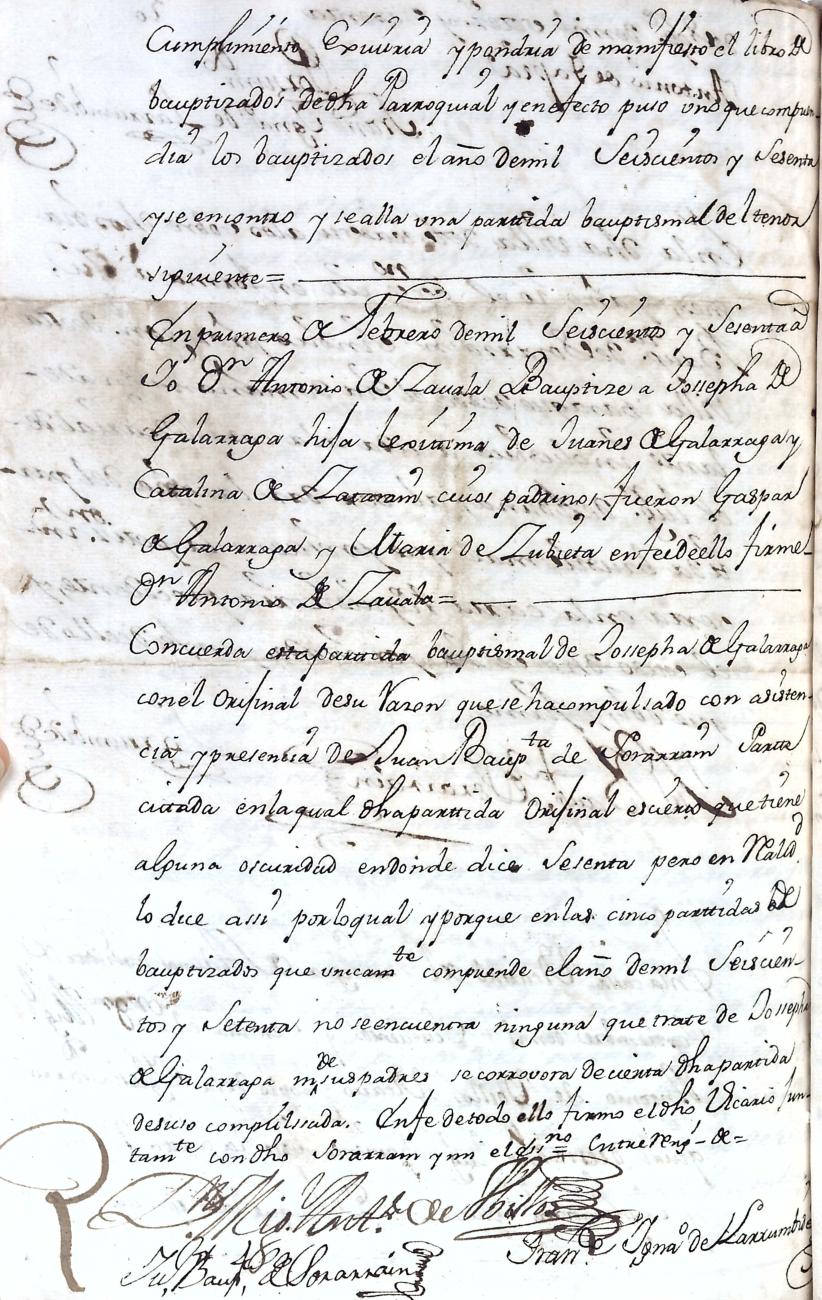 Cumplimiento Exiviria y pondria de manifiesto el libro de
bauptizados de dha Parroquial y en efecto puso uno que compren-
dia los bauptizados el año de mil Seiscientos y Sesenta
y se encontro y se alla una partida bauptismal del tenor
siguiente =
En primero de Febrero de mil Seiscientos y Sesenta
Yo Dn Antonio de Zavala Bauptize a Josepha de
Galarraga hija lexittima de Juanes de Galarraga y
Catalina de cuios padrinos fueron Gaspar
de Galarraga y Maria de Zubieta en fee de ello firme
Dn Antonio de Zavala =
Concuerda esta partida bauptismal de Josepha de Galarraga
con el Orijinal de su Razon que se ha compulsado con asisten-
cia y presencia de Juan Baupta de Sorarrain Partte
cittada en la qual dha parttida Orijinal es cierto que tiene
alguna oscuridad en donde dice Sesenta pero en Realidd
lo dice assi por lo qual y porque en las cinco parttidas de
bauptizados que unicamte comprende el año de mil Seiscien-
tos y Setenta no se encuentra ninguna que trate de Josepha
de Galarraga ni de sus padres se corrovora de cierta dha partida
de suso compulssada. En fe de todo ello firmo el dho Vicario Jun-
tamte con dho Sorarrain y mi el essno = Entre reng.s - de =
Dn Antt.o de
Juº Baup.ta de Sorarrain
Fran.co Ignaº de Larrumbide